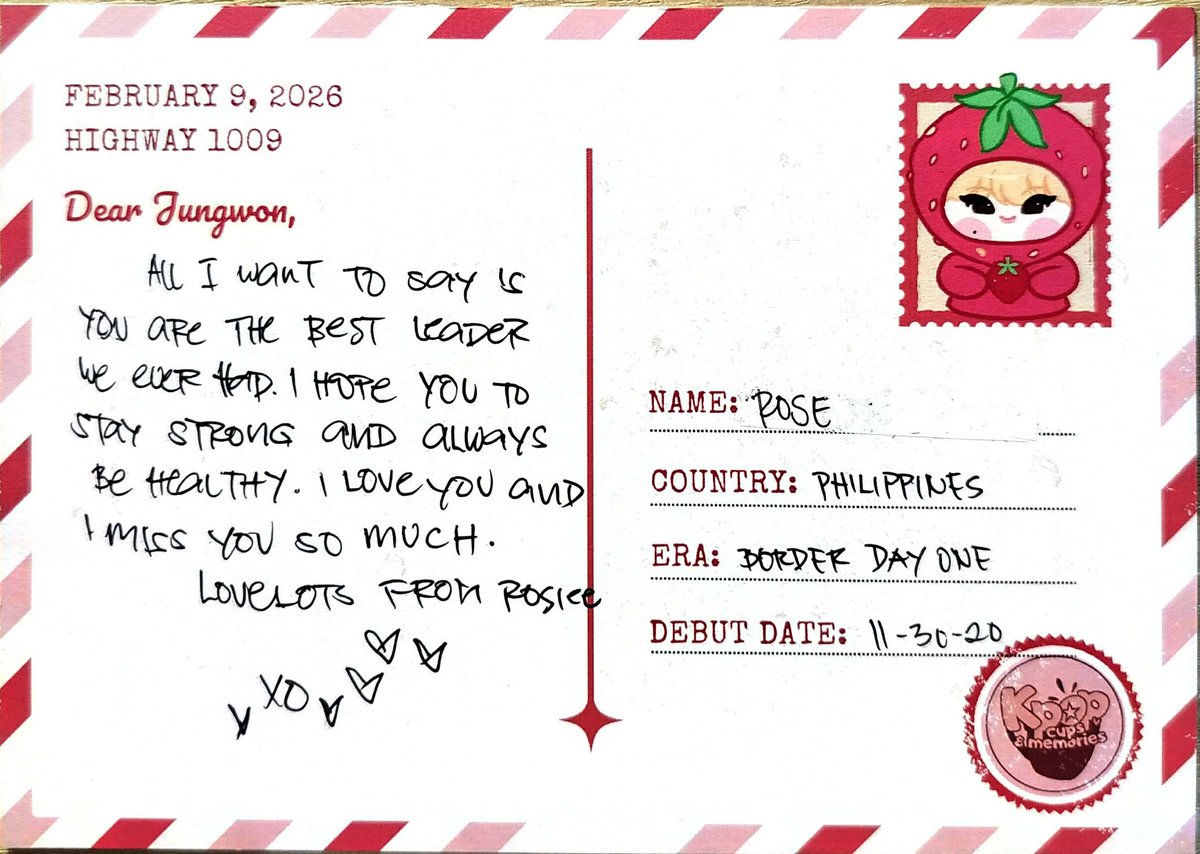 FEBRUARY 9, 2026
HIGHWAY 1009
Dear Jungwon,
All I want to say is
you are the best leader
we ever had. I hope you to
stay strong and always
be healthy. I love you and
I miss you so much.
Lovelots from Rosiee
XO
NAME: ROSE
COUNTRY: PHILIPPINES
ERA: BORDER DAY ONE
DEBUT DATE: 11-30-20
Kpop
cups
& memories